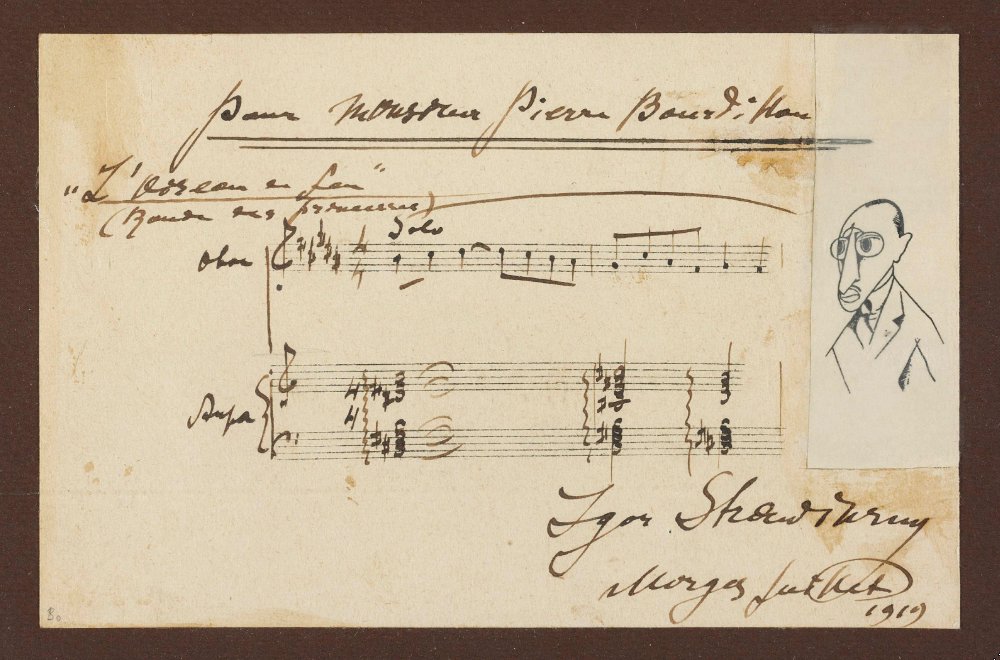 Pour Monsieur Pierre Bourdillon
"L'Oiseau de feu"
(Ronde des princesses)
Solo
Oboe
4
4
Arpa
4
4
Igor Strawinsky
Morges Juillet
1919
80